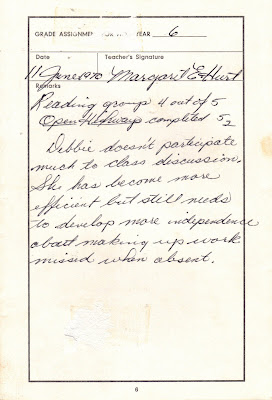 GRADE ASSIGNMENT FOR NEXT YEAR 6
Date Teacher's Signature
11 June 1970 Margaret E. Hurt
Remarks
Reading group 4 out of 5
Open Highways completed 5₂
Debbie doesn't participate
much to class discussion.
She has become more
efficient but still needs
to develop more independence
about making up work
missed when absent.
6